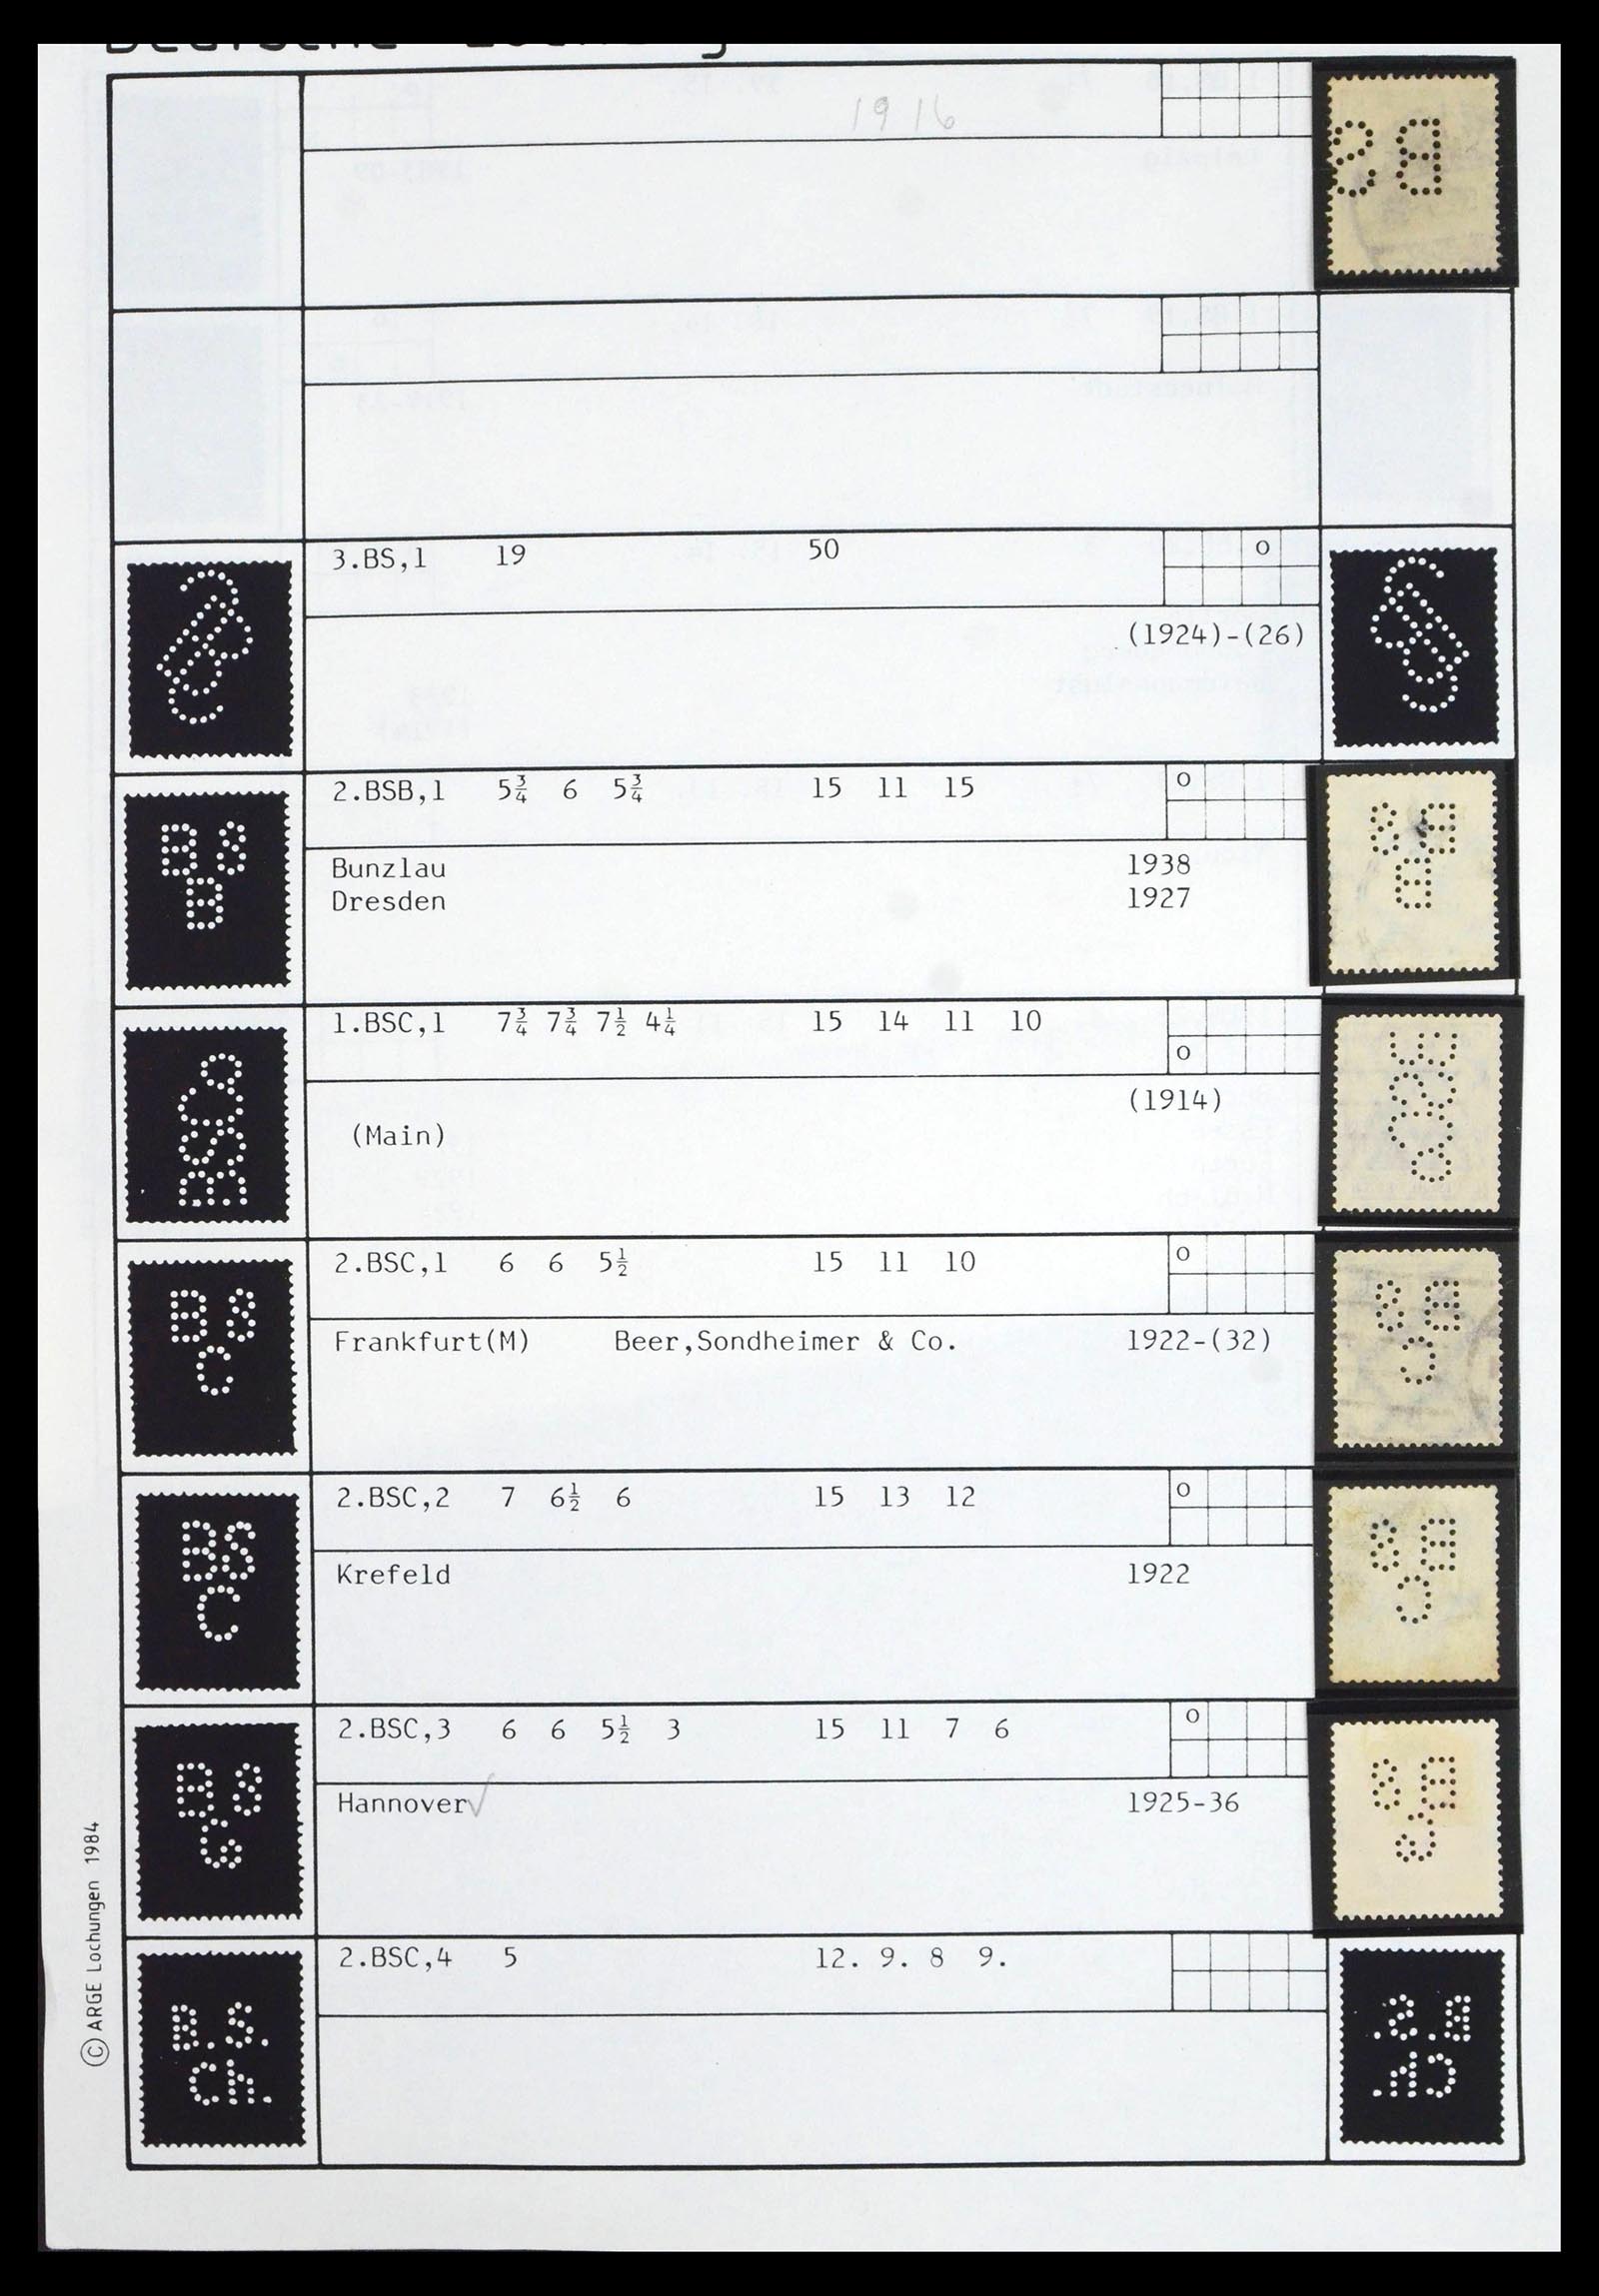 1916
3.BS,1 19 50 o
(1924)-(26)
2.BSB,1 5¾ 6 5¾ 15 11 15 o
Bunzlau 1938
Dresden 1927
1.BSC,1 7¾ 7¾ 7½ 4¼ 15 14 11 10
o
(1914)
(Main)
2.BSC,1 6 6 5½ 15 11 10 o
Frankfurt(M) Beer,Sondheimer & Co. 1922-(32)
2.BSC,2 7 6½ 6 15 13 12 o
Krefeld 1922
2.BSC,3 6 6 5½ 3 15 11 7 6 o
Hannover✓ 1925-36
2.BSC,4 5 12. 9. 8 9.
B.S.
Ch.
BS
B
BS
C
BS
C
BS
Co
© ARGE Lochungen 1984